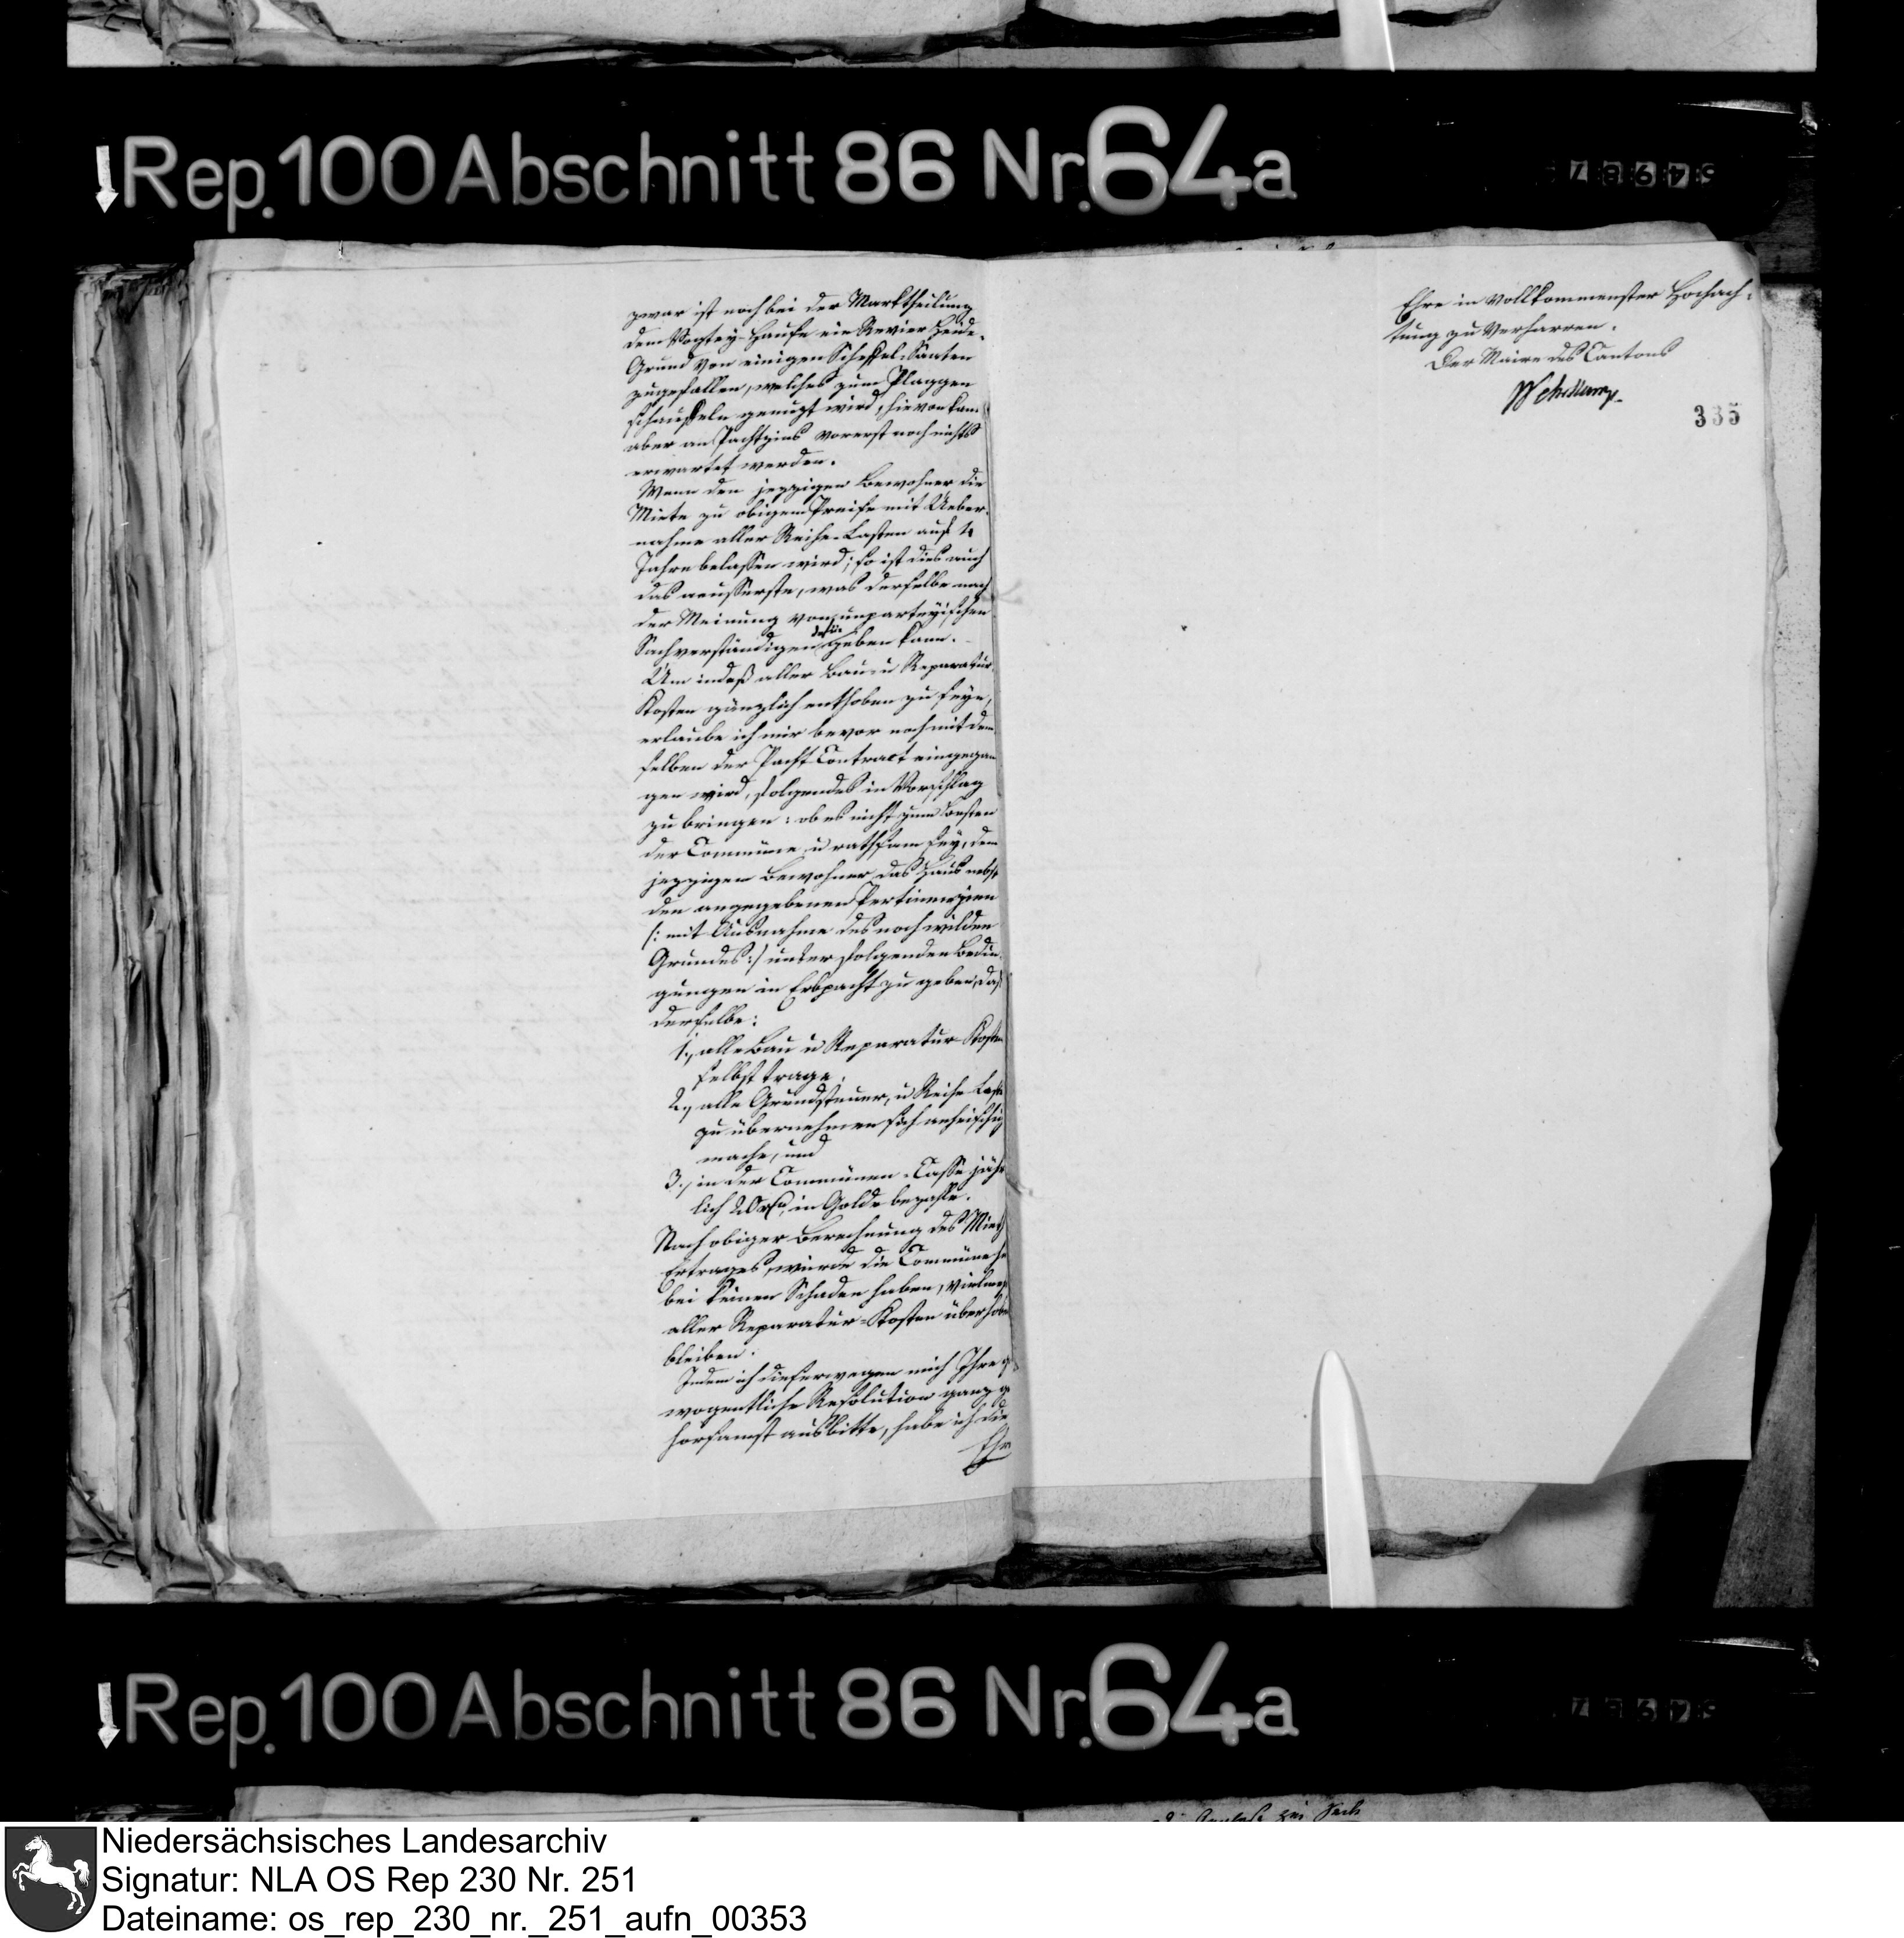 Rep. 100 Abschnitt 86 Nr. 64a
zwar ist noch bei der Marktheilung
dem Vogtey-Hause ein Revier Heide-
Grund von einigen Scheffel-Saaten
zugefallen, welches zum Plaggen
schauffeln genuzt wird, hievon kan
aber an Pachtzins vorerst noch nichts
erwartet werden.
Wenn den jezzigen Bewohner die
Miete zu obigem Preise mit Ueber-
nahme aller Reihe-Lasten auf 4
Jahre belassen wird; so ist dies auch
das aeusserste, was derselbe nach
der Meinung von unparteyischen
Sachverständigen dafür geben kann.
Um indeß aller Bau u Reparatur
Kosten gänzlich enthoben zu seyn,
erlaube ich mir bevor noch mit dem
selben der Pacht-Contract eingegan
gen wird, folgendes in Vorschlag
zu bringen: ob es nicht zum Besten
der Commüne u rathsam sey, dem
jezzigen Bewohner das Haus nebst
den angegebenen Pertinenzien
/: mit Ausnahme des noch wilden
Grundes :/ unter folgenden Bedin
gungen in Erbpacht zu geben, daß
derselbe:
1., alle Bau u Reparatur-Kosten
selbst trage,
2., alle Grundsteuer, u Reihe-Last
zu übernehmen sich anheischig
mache, und
3., in der Commünen-Casse jähr
lich 20 in Golde bezahle.
Nach obiger Berechnung des Mieth
Ertrages, würde die Commüne hie
bei keinen Schaden haben, vielmehr
aller Reparatur-Kosten überhoben
bleiben.
Indem ich dieserwegen mich Ihre ge
wogentliche Resolution ganz ge
horsamst ausbitte, habe ich die
Ehre
Ehre in vollkommenster Hochach-
tung zu verharren.
Der Maire des Cantons
335
Rep. 100 Abschnitt 86 Nr. 64a
Niedersächsisches Landesarchiv
Signatur: NLA OS Rep 230 Nr. 251
Dateiname: os_rep_230_nr._251_aufn_00353